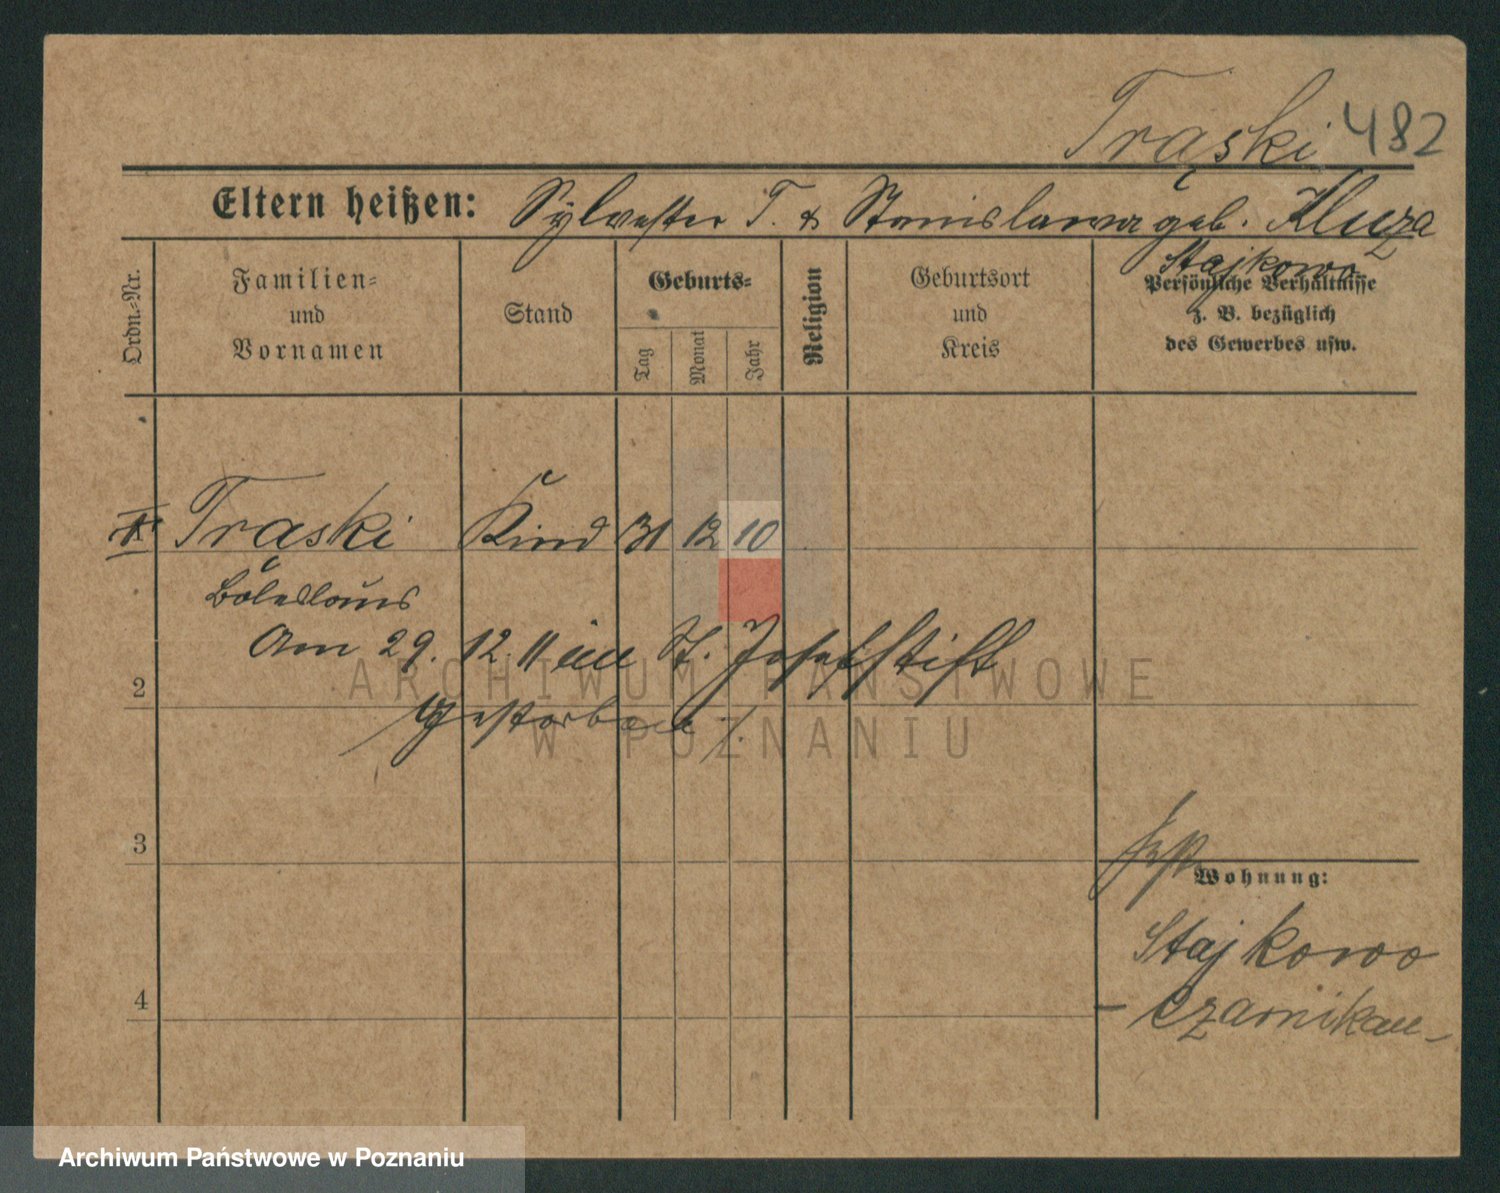 Trąski 482
Eltern heißen: Sylvester T. & Stanislawa geb. Kluza
Stajkowo
Ordn.-Nr.
Familien-
und
Vornamen
Stand
Geburts-
Tag
Monat
Jahr
Religion
Geburtsort
und
Kreis
Persönliche Verhältnisse
z. B. bezüglich
des Gewerbes usw.
1 Trąski Kind 31 12 10
Boleslaus
Am 29. 12. 11 im St. Josefstift
2
gestorben /.
3
Wohnung:
Stajkowo
4
- Czarnikau -
ARCHIWUM PAŃSTWOWE
W POZNANIU
Archiwum Państwowe w Poznaniu